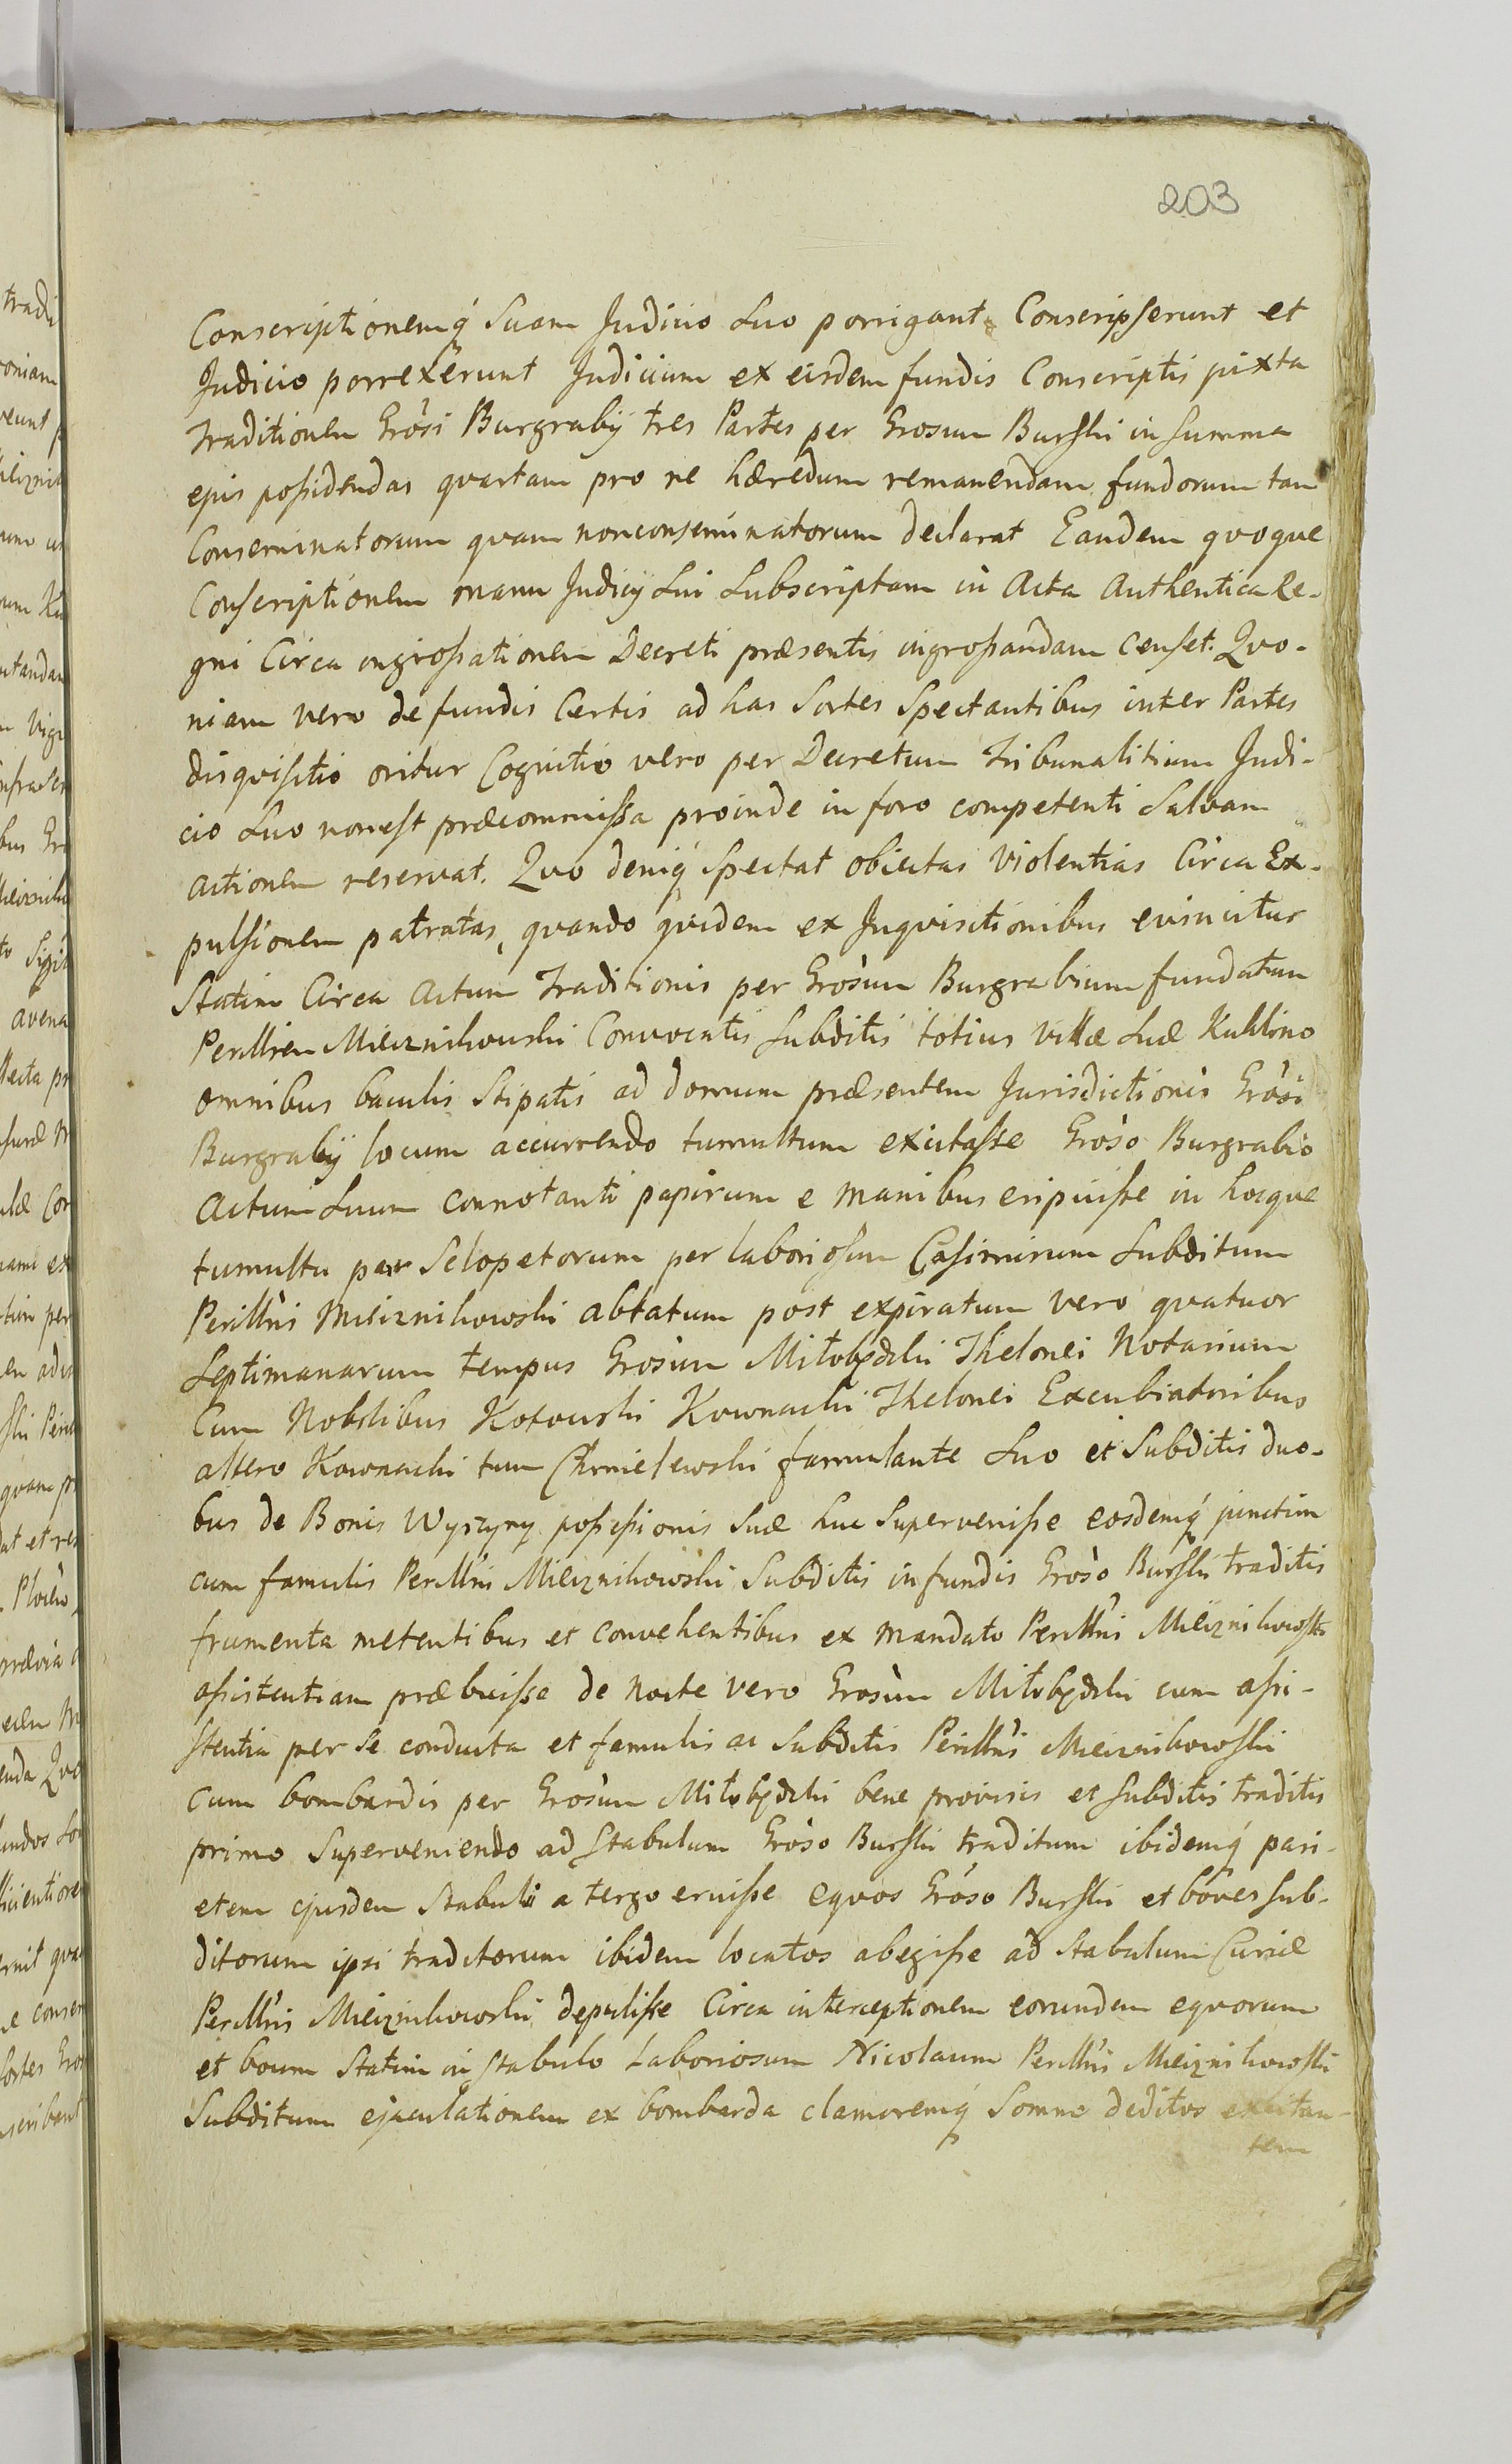 203
Conscriptionemq́ Suam Judicio Suo porrigant Conscripserunt et
Judicio porrexerunt Judicium ex eisdem fundis Conscriptis juxta
traditionem Grosi Burgrabij tres Partes per Grosum Burski in summa
ejus possidendas quartam pro re hæredum remanendam fundorum tam
Conseminatorum quam nonconseminatorum declarat Eandem quoque
Conscriptionem manu Judicij Sui Subscriptam in Acta Authentica Re-
gni Circa ingrossationem Decreti præsentis ingrossandam censet. Quo-
niam vero de fundis Certis ad has Sortes Spectantibus inter Partes
disquisitio oritur Cognitio vero per Decretum Tribunalitium Judi-
cio Suo nonest præcommissa proinde in foro competenti Salvam
actionem reservat. Quo deniq́ Spectat obiectas Violentias Circa Ex-
pulsionem patratas, quando quidem ex Inquisitionibus evincitur
Statim Circa Actum Traditionis per Grosum Burgrabium fundatum
Perillrem Mieiznikowski Convocatis Subditis totius Villæ Suæ Kuklino
omnibus baculis Stipatis ad domum præsentem Jurisdictionis Grosi
Burgrabij locum accurrendo tumultum excitasse Groso Burgrabio
Actum Suum connotanti papirum e manibus eripuisse in hocque
tumultu par Sclopetorum per laboriosum Casimirum Subditum
Perillris Mieiznikowski ablatum post expiratum vero quatuor
Septimanarum tempus Grosum Miłobędzki Thelonei Notarium
Cum Nobilibus Kotowski Kownacki Thelonei Excubiatoribus
altero Kownacki tum Chmielewski famulante Suo et Subditis duo-
bus de Bonis Wyszyny possessionis Suæ huc Supervenisse eosdemq́ junctim
cum famulis Perillris Mieiznikowski Subditis in fundis Groso Burski traditis
frumenta metentibus et convehentibus ex mandato Perillris Mieiznikowski
assistentiam præbuisse de nocte vero Grosum Miłobędzki cum assi-
stentia per se conducta et famulis ac Subditis Perillris Mieiznikowski
cum bombardis per Grosum Miłobędzki bene provisis et Subditis traditis
primo Superveniendo ad Stabulum Groso Burski traditum ibidemq́ pari-
etem ejusdem Stabuli a tergo eruisse equos Groso Burski et boves sub-
ditorum ipsi traditorum ibidem locatos abegisse ad Stabulum Curiæ
Perillris Mieiznikowski depulisse Circa interceptionem eorundem equorum
et boum Statim in Stabulo Laboriosum Nicolaum Perillris Mieiznikowski
Subditum ejaculationem ex bombarda clamoremq́ Somno deditos excitan-
tem